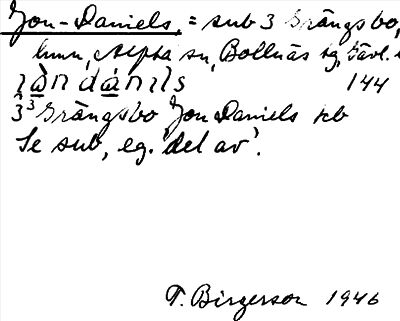 Jon-Daniels, = sub 3 Grängsbo,
hmn, Alfta sn, Bollnäs tg, Gävl. l
144
3 Grängsbo Jon Daniels sub
Se sub, eg. 'del av'.
T. Birgerson 1946